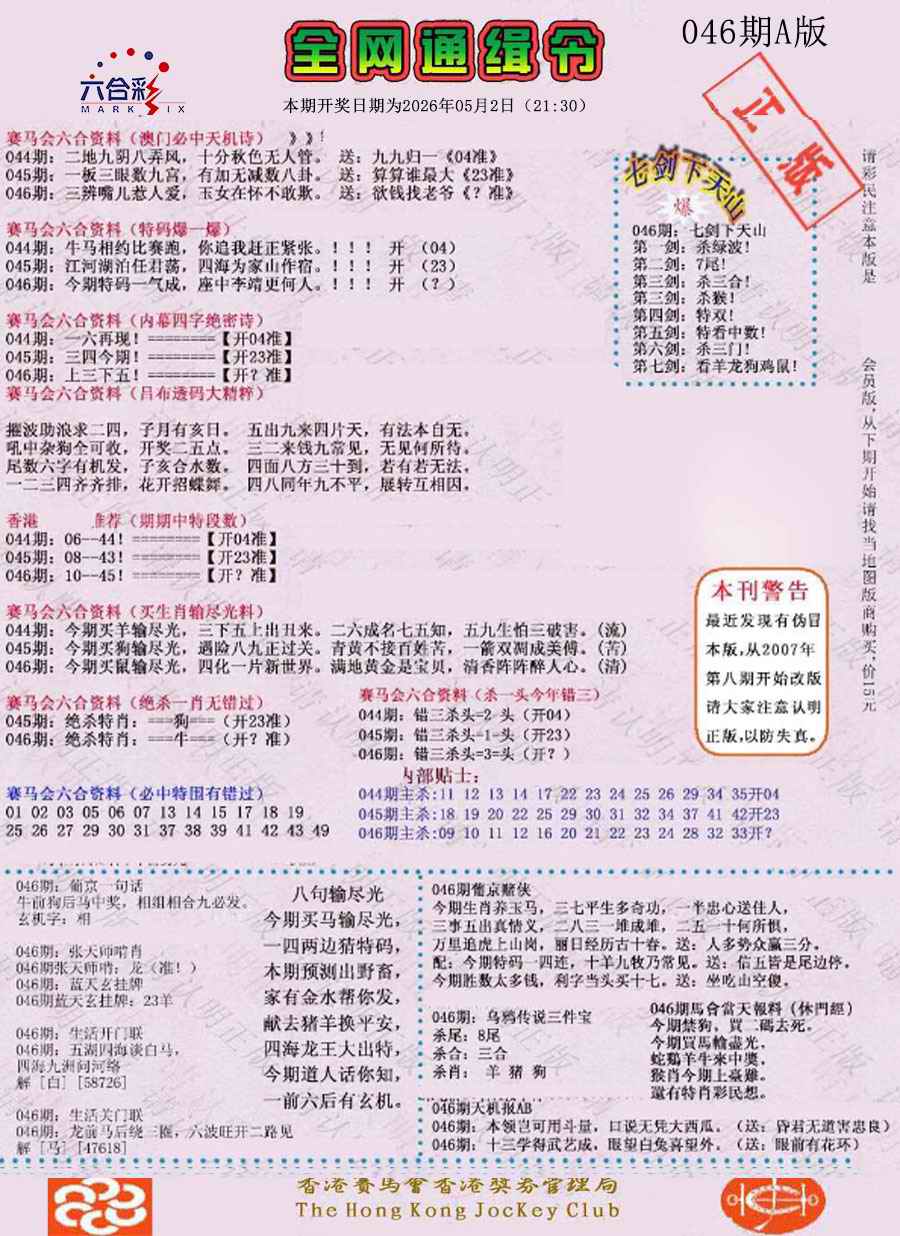 046期A版
全网通缉令
六合彩
MARK SIX
本期开奖日期为2026年05月2日（21:30）
正版
赛马会六合资料（澳门必中天机诗） 》》
044期: 二地九阴八弄风，十分秋色无人管。 送: 九九归一《04准》
045期: 一板三眼数九宫，有加无减数八卦。 送: 算算谁最大《23准》
046期: 三辨嘴儿惹人爱，玉女在怀不敢欺。 送: 欲钱找老爷《？准》
赛马会六合资料（特码爆一爆）
044期: 牛马相约比赛跑，你追我赶正紧张。！！！ 开 （04）
045期: 江河湖泊任君荡，四海为家山作宿。！！！ 开 （23）
046期: 今期特码一气成，座中李靖更何人。！！！ 开 （？）
赛马会六合资料（内幕四字绝密诗）
044期: 一六再现！========【开04准】
045期: 三四今期！========【开23准】
046期: 上三下五！========【开？准】
赛马会六合资料（吕布透码大精粹）
摧波助浪求二四，子月有亥日。 五出九来四片天，有法本自无。
吼中杂狗全可收，开奖二五点。 三二来钱九常见，无见何所待。
尾数六字有机发，子亥合水数。 四面八方三十到，若有若无法。
一二三四齐齐排，花开招蝶舞。 四八同年九不平，展转互相因。
香港 推荐（期期中特段数）
044期: 06--44！========【开04准】
045期: 08--43！========【开23准】
046期: 10--45！========【开？准】
赛马会六合资料（买生肖输尽光料）
044期: 今期买羊输尽光，三下五上出丑来。二六成名七五知，五九生怕三破害。(流)
045期: 今期买狗输尽光，遇险八九正过关。青黄不接百姓苦，一箭双凋成美傅。(苦)
046期: 今期买鼠输尽光，四化一片新世界。满地黄金是宝贝，清香阵阵醉人心。(清)
赛马会六合资料（绝杀一肖无错过）
045期: 绝杀特肖: ===狗===（开23准）
046期: 绝杀特肖: ===牛===（开？准）
赛马会六合资料（杀一头今年错三）
044期: 错三杀头=2-头（开04）
045期: 错三杀头=1-头（开23）
046期: 错三杀头=3=头（开？）
赛马会六合资料（必中特围有错过）
01 02 03 05 06 07 13 14 15 17 18 19
25 26 27 29 30 31 37 38 39 41 42 43 49
内部贴士:
044期主杀:11 12 13 14 17 22 23 24 25 26 29 34 35开04
045期主杀:18 19 20 22 25 29 30 31 32 34 37 41 42开23
046期主杀:09 10 11 12 16 20 21 22 23 24 28 32 33开？
七剑下天山
爆
046期: 七剑下天山
第一剑: 杀绿波！
第二剑: 7尾！
第三剑: 杀三合！
第三剑: 杀猴！
第四剑: 特双！
第五剑: 特看中数！
第六剑: 杀三门！
第七剑: 看羊龙狗鸡鼠！
请彩民注意本版是
会员版,从下期开始请找当地图版商购买,价15元
本刊警告
最近发现有伪冒
本版,从2007年
第八期开始改版
请大家注意认明
正版,以防失真。
046期: 葡京一句话
牛前狗后马中奖，相组相合九必发。
玄机字: 相
046期: 张天师啃肖
046期张天师啃: 龙（准！）
046期: 蓝天玄挂牌
046期蓝天玄挂牌: 23羊
046期: 生活开门联
046期: 五湖四海谈白马，
四海九洲问河络
解 [白] [58726]
046期: 生活关门联
046期: 龙前马后绕三圈，六波旺开二路见
解 [马] [47618]
八句输尽光
今期买马输尽光，
一四两边猜特码，
本期预测出野畜，
家有金水帮你发，
献去猪羊换平安，
四海龙王大出特，
今期道人话你知，
一前六后有玄机。
046期葡京赌侠
今期生肖养玉马，三七平生多奇功，一半忠心送佳人，
三事五出真情义，二八三一堆成堆，二五一十何所惧，
万里追虎上山岗，丽日经历古十春。送: 人多势众赢三分。
配: 今期特码一四连，十羊九牧乃常见。送: 信五皆是尾边停。
今期胜数太多钱，利字当头买十七。送: 坐吃山空傻。
046期: 乌鸦传说三件宝
杀尾: 8尾
杀合: 三合
杀肖: 羊 猪 狗
046期馬會當天報料（休門經）
今期禁狗，買二碼去死。
今期買馬輸盡光，
蛇鷄羊牛來中獎，
猴肖今期上臺難。
還有特肖彩民想。
046期天机报AB
046期: 本领岂可用斗量，口说无凭大西瓜。（送: 昏君无道害忠良）
046期: 十三学得武艺成，眼望白兔喜望外。（送: 眼前有花环）
香港賽馬會香港獎券管理局
The Hong Kong JocKey Club